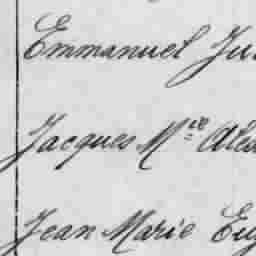 Emmanuel Ju
Jacques M.ce Alex
Jean Marie Eug